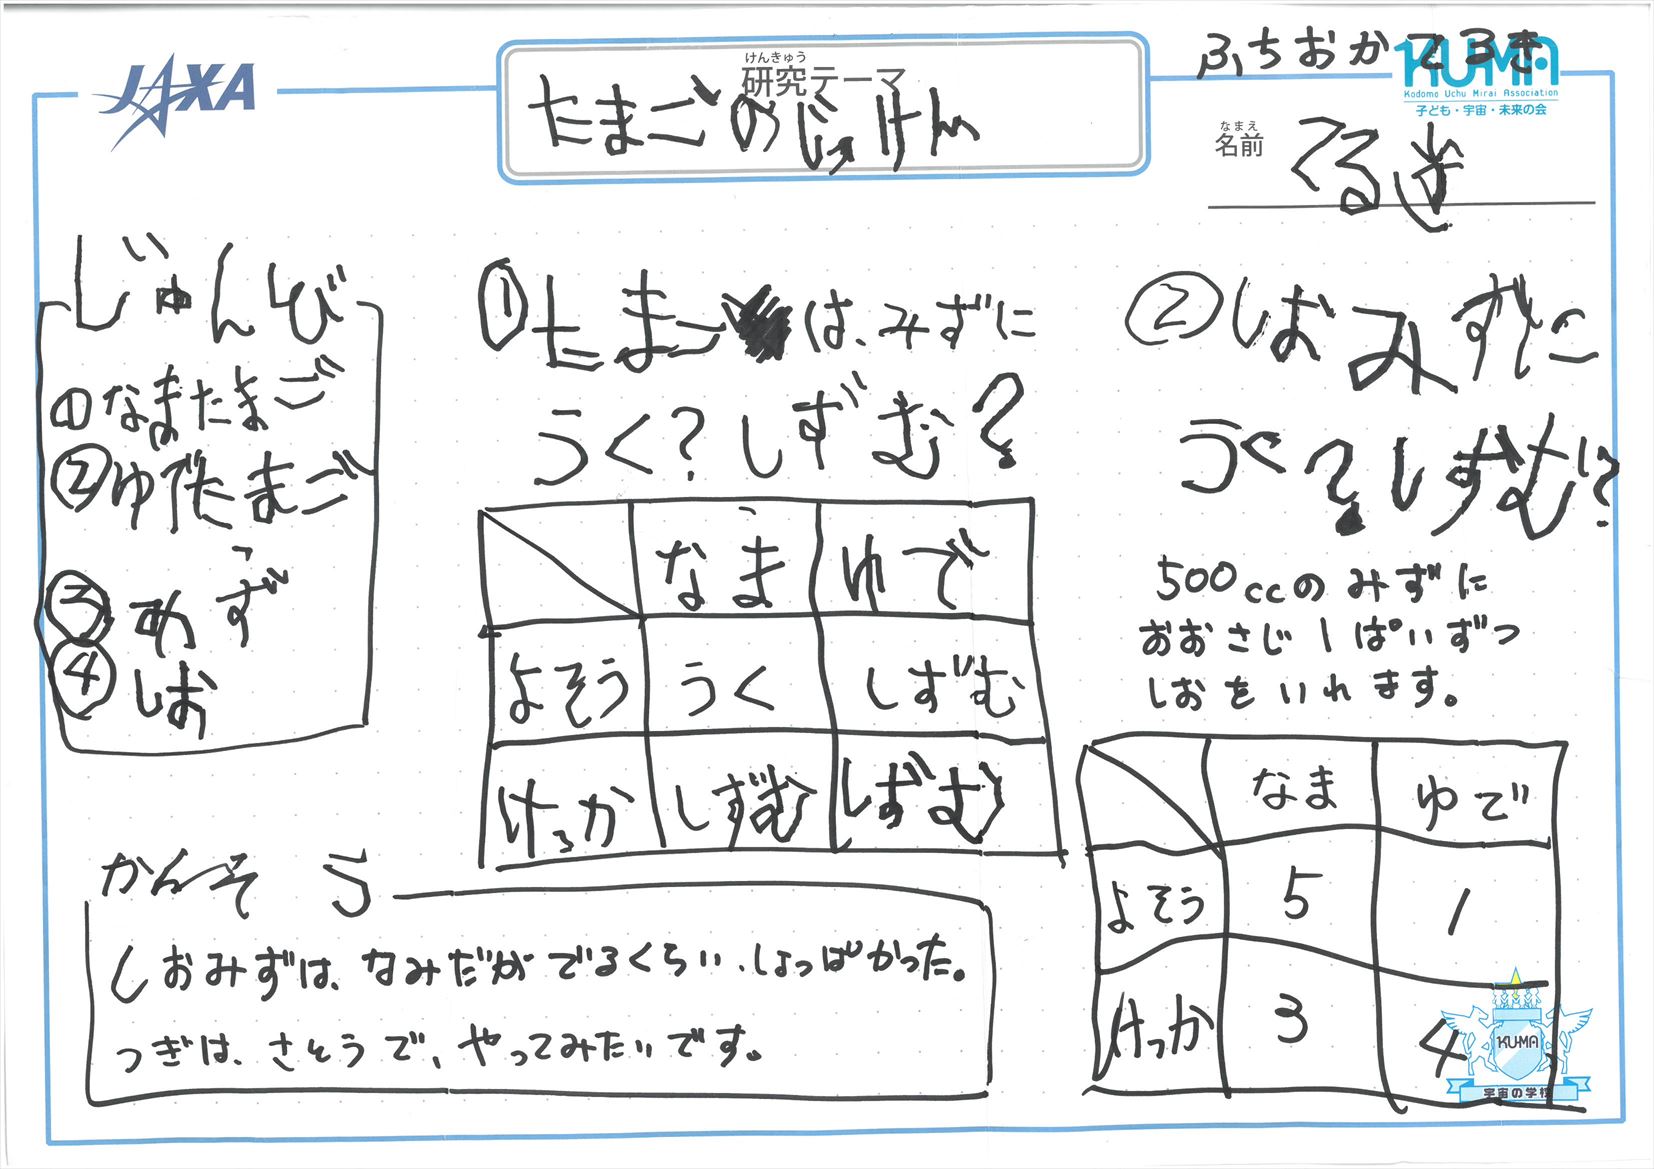 JAXA
けんきゅう
研究テーマ
たまごのじっけん
ふちおかてるき
KUMA
Kodomo Uchu Mirai Association
子ども・宇宙・未来の会
なまえ
名前
てるき
じゅんび
①なまたまご
②ゆでたまご
③みず
④しお
①たまごは、みずに
うく?しずむ?
なま ゆで
よそう うく しずむ
けっか しずむ しずむ
②しおみずに
うく?しずむ?
500ccのみずに
おおさじ1ぱいずつ
しおをいれます。
なま ゆで
よそう 5 1
けっか 3 4
かんそう
しおみずは、なみだがでるくらい、しょっぱかった。
つぎは、さとうで、やってみたいです。
KUMA
宇宙の学校